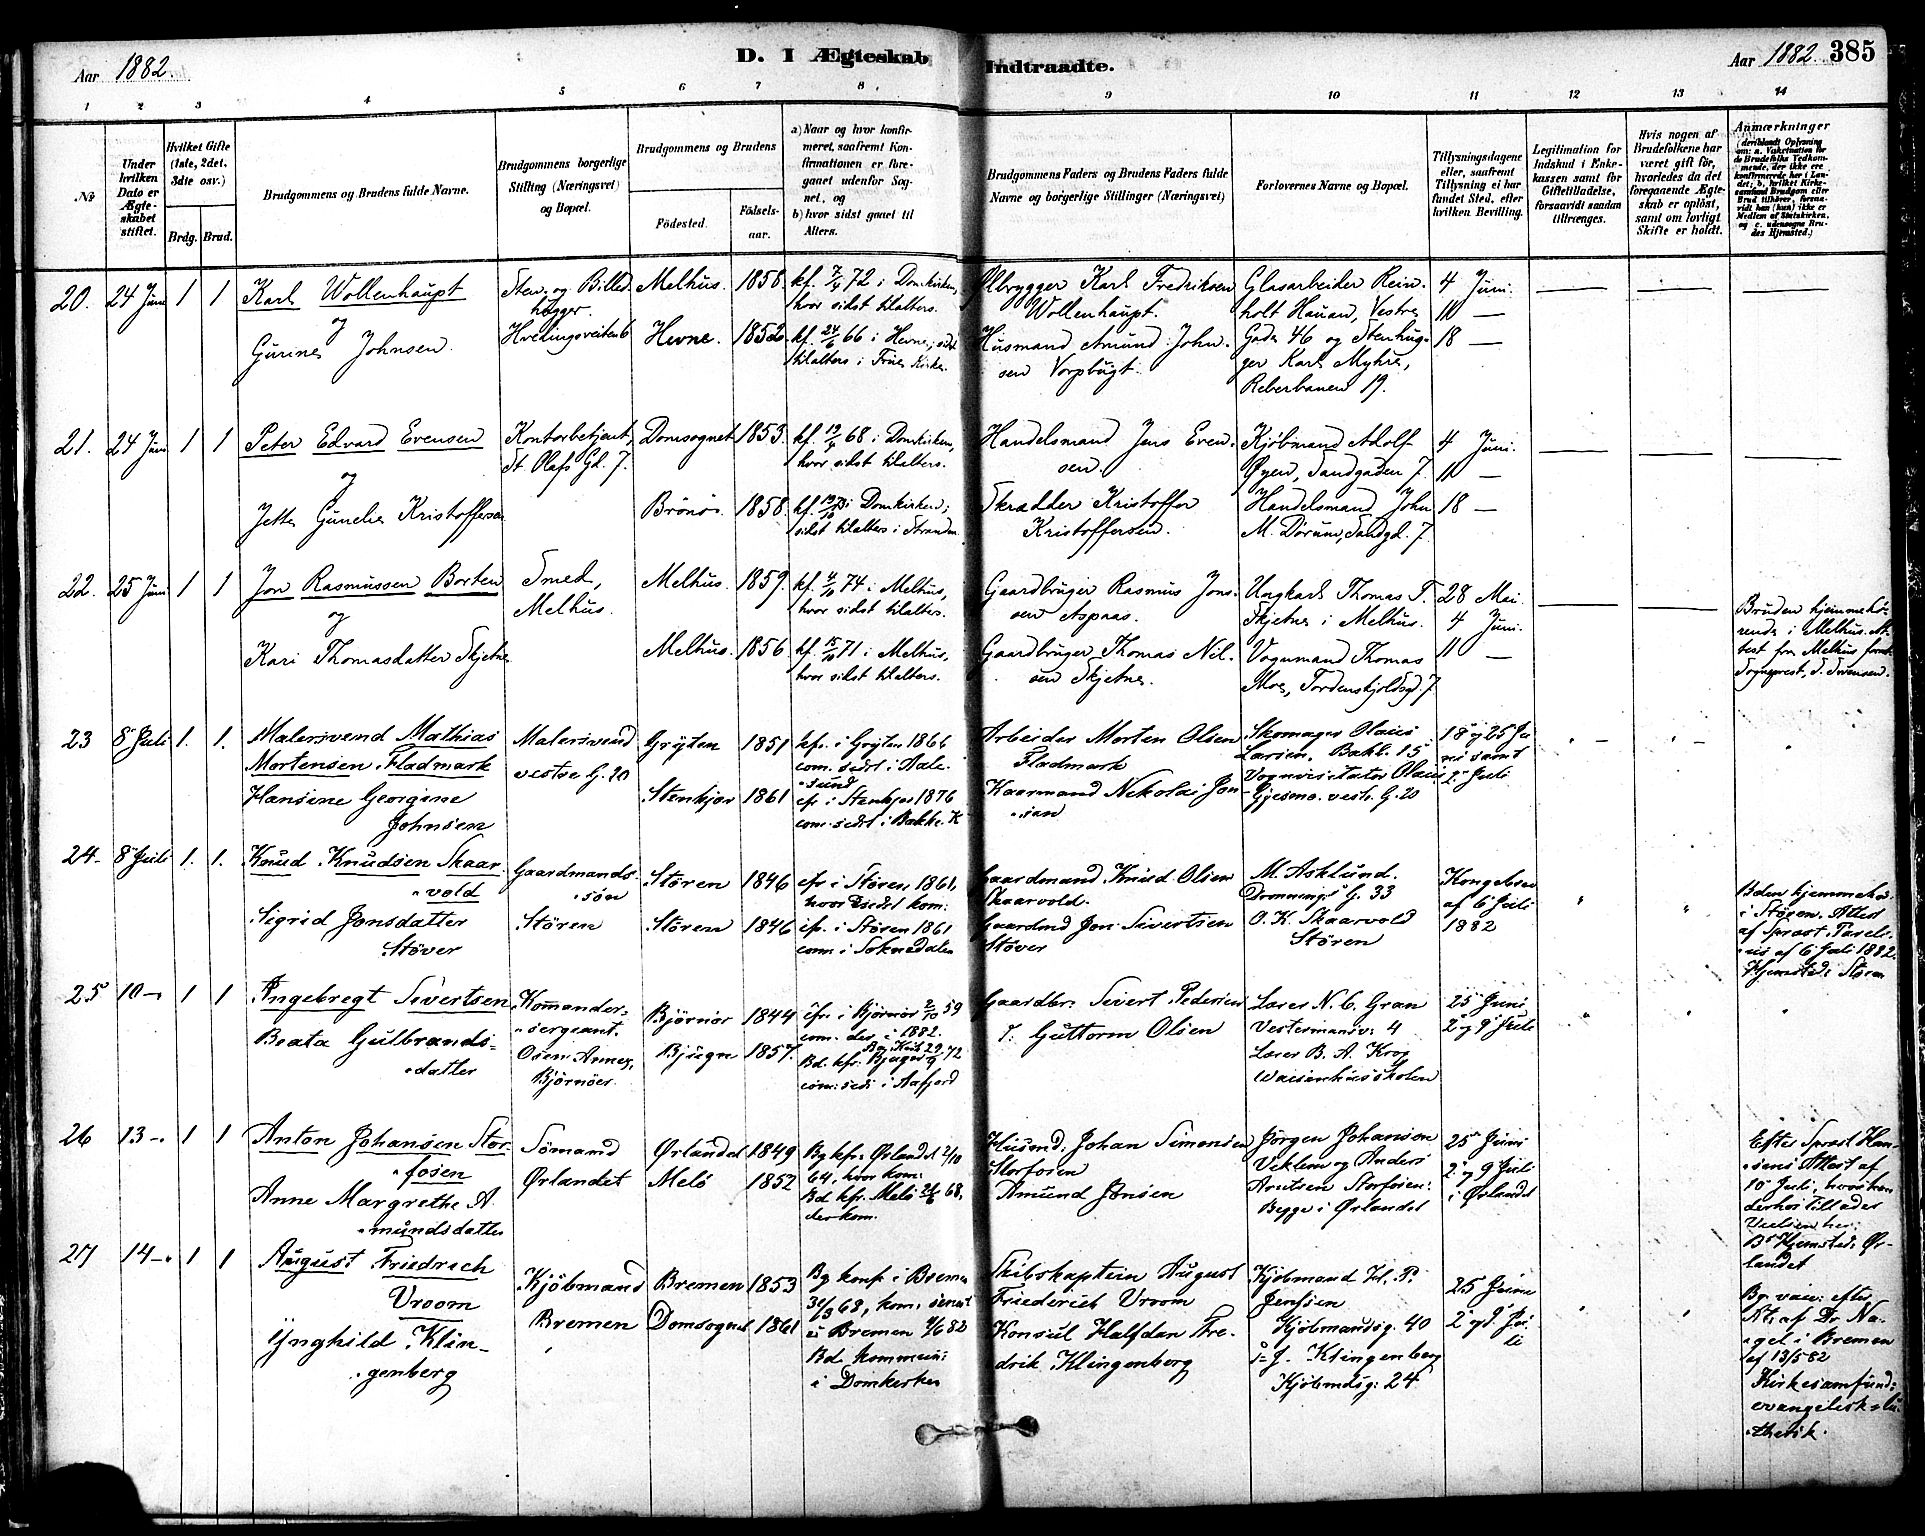 Aar 1882.
D. I Ægteskab
Indtraadte.
Aar 1882. 385
1 2 3 4 5 6 7 8 9 10 11 12 13 14
№
Under hvilken Dato er Ægteskabet stiftet.
Hvilket Gifte (1ste, 2det, 3die osv.)
Brdg. Brud.
Brudgommens og Brudens fulde Navne.
Brudgommens borgerlige Stilling (Næringsvei) og Bopæl.
Brudgommens og Brudens
Fødested.
Fødsels-aar.
a) Naar og hvor konfirmeret, saafremt Konfirmationen er foregaaet udenfor Sognet, og
b) hvor sidst gaaet til Alters.
Brudgommens Faders og Brudens Faders fulde Navne og borgerlige Stillinger (Næringsvei)
Forlovernes Navne og Bopæl.
Tillysningsdagene eller, saafremt Tillysning ei har fundet Sted, efter hvilken Bevilling.
Legitimation for Indskud i Enkekassen samt for Giftetilladelse, forsaavidt saadan tiltrænges.
Hvis nogen af Brudefolkene har været gift før, hvorledes da det foregaaende Ægteskab er opløst, samt om lovligt Skifte er holdt.
Anmærkninger
20. 24 Juni 1 1
Karl Wollenhaupt
og
Gurine Johnsen.
Sten og Billed
hugger.
Hvedingsveiten 6
Melhus. 1858.
Hevne. 1852.
kf. 7/4 72 i Domkirken,
hvor sidst tilalters.
kf. 24/6 66 i Hevne; sidst
tilalters i Frue Kirke.
Ølbrygger Karl Fredriksen
Wollenhaupt.
Husmand Amund John-
sen Vorpbugt.
Glasarbeider Rein-
holt Hauan, Vestre
Gade 46 og Stenhug-
ger Karl Myhre,
Reberbanen 19.
4 Juni.
11 —
18 —
21. 24 Juni 1 1
Peter Edvard Evensen
og
Jette Gunelie Kristoffersen
Kontorbetjent,
St. Olafs Gd. 7.
Domsognet 1853.
Brönö. 1858.
kf. 19/4 68 i Domkirken,
hvor sidst tilalters.
kf. 19/10 73 i Domkirken;
sidst tilalters i Stranden
Handelsmand Jens Even-
sen.
Skrædder Kristoffer
Kristoffersen.
Kjøbmand Adolf
Øyen, Sandgaden 7.
Handelsmand John
M. Dörum, Sandgd. 7.
4 Juni.
11 —
18 —
22. 25 Juni 1 1
Jon Rasmussen Borten
og
Kari Thomasdatter Skjetne
Smed,
Melhus.
Melhus. 1859.
Melhus. 1856.
kf. 4/10 74 i Melhus,
hvor sidst tilalters.
kf. 15/10 71 i Melhus,
hvor sidst tilalters.
Gaardbruger Rasmus Jons-
sen Aspaas.
Gaardbruger Thomas Nil-
sen Skjetne.
Ungkarl Thomas T.
Skjetne i Melhus.
Vognmand Thomas
Moe, Tordenskjoldsgd. 7
28 Mai.
4 Juni.
11 —
Bruden hjemmehö-
rende i Melhus. At-
test fra Melhus
Sogneprest, S. Svensen.
23 8 Juli 1. 1.
Malersvend Mathias
Mortensen Fladmark
Hansine Georgine
Johnsen
Malersvend
vestre G. 20
Gryten 1851
Stenkjær 1861
kfr. i Gryten 1866
com. sidst i Aale-
sund
cfr. i Stenkjær 1876
com. sidst i Bakke K
Arbeider Morten Olsen
Fladmark
Kaarmand Nikolai Jon-
sen
Skomager Olaus
Larsen. Bakl. 15
Vognvisitatør Olaus
Gjesmo. vestr. G. 20
18 og 25 Ju
ni samt
2 Juli
24. 8 Juli 1. 1.
Knud Knudsen Skaar-
vold
Sigrid Jonsdatter
Støver
Gaardmands-
søn
Støren
Støren 1846
Støren 1846
cfr i Støren 1861,
hvor sidst kom:
cfr. i Støren 1861
com. i Soknedalen
Gaardmand Knud Olsen
Skaarvold.
Gaardmd Jon Sivertsen
Støver
M. Asklund.
Dronnings G. 33
O. K. Skaarvold
Støren
Kongebrev
af 6 Juli
1882
Bden hjemmehø-
i Støren. Attest
af Sprest
af 6 Juli 1882.
Hjemsted: Støren
25 10 — 1 1
Ingebregt Sivertsen
Beata Gulbrands-
datter
Kommander-
sergeant.
Osen Annex,
Bjørnöer.
Björnör 1844
Bjugn 1857.
cfr. i Bjørnör 2/10 59
com. der i 1882.
Bd. kfr. Bjugn 29/9 72
com: sidst i Aafjord
Gaardbr. Sivert Pedersen
T: Guttorm Olsen
Lærer N. C. Gran
Vestermansv: 4
Lærer B. A. Krog
Waisenhusskolen
25 Juni
2 og 9 Juli
26 13 — 1 1
Anton Johansen Stor-
fosen
Anne Margrethe A-
mundsdatter
Sömand
Ørlandet
Ørlandet 1849
Melö 1852
Bg kfr. Ørlandet 2/10
64, hvor kom:
Bd. kfr. Melö 21/6 68,
der kom.
Husmd. Johan Simonsen
Storfosen
Amund Jonsen
Jörgen Johansen
Veklem og Anders
Arntsen Storfosen:
Begge i Ørlandet
25 Juni
2 og 9 Juli
i Ørlandet
Efter Sprest Han-
sens Attest af
10 Juli, hvor han
derhos tillader
Vielsen her.
Bs Hjemsted: Ør-
landet
27 14 — 1 1
August Friedrich
Vroom
Ynghild Klin-
genberg
Kjöbmand
Bremen
Bremen 1853
Domsognet 1861
Bg konf. i Bremen
31/3 68, kom: senest
i Bremen 4/6 82
Bd. kommun:
i Domkirken
Skibskaptein August
Friederich Vroom
Konsul Halfdan Fre-
drik Klingenberg
Kjöbmand H. P.
Jenssen
Kjöbmandsg. 40
J. Klingenberg
Kjöbmdsg: 24
25 Juni
2 og 9 Ju-
li
Bg. vacc: efter
Att: af Dr Na-
gel i Bremen
af 13/5 82
Kirkesamfund:
evangelisk-lu-
thersk.